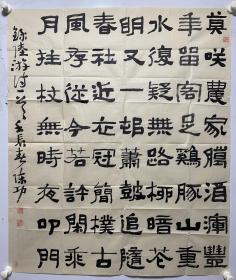 莫咲農家臘酒渾豐
年留客足鷄豚山重
水復疑無路柳暗花
明又一邨簫鼓追隨
春社近衣冠簡樸古
風存從今若許閑乘
月拄杖無時夜叩門
錄陸游詩一首